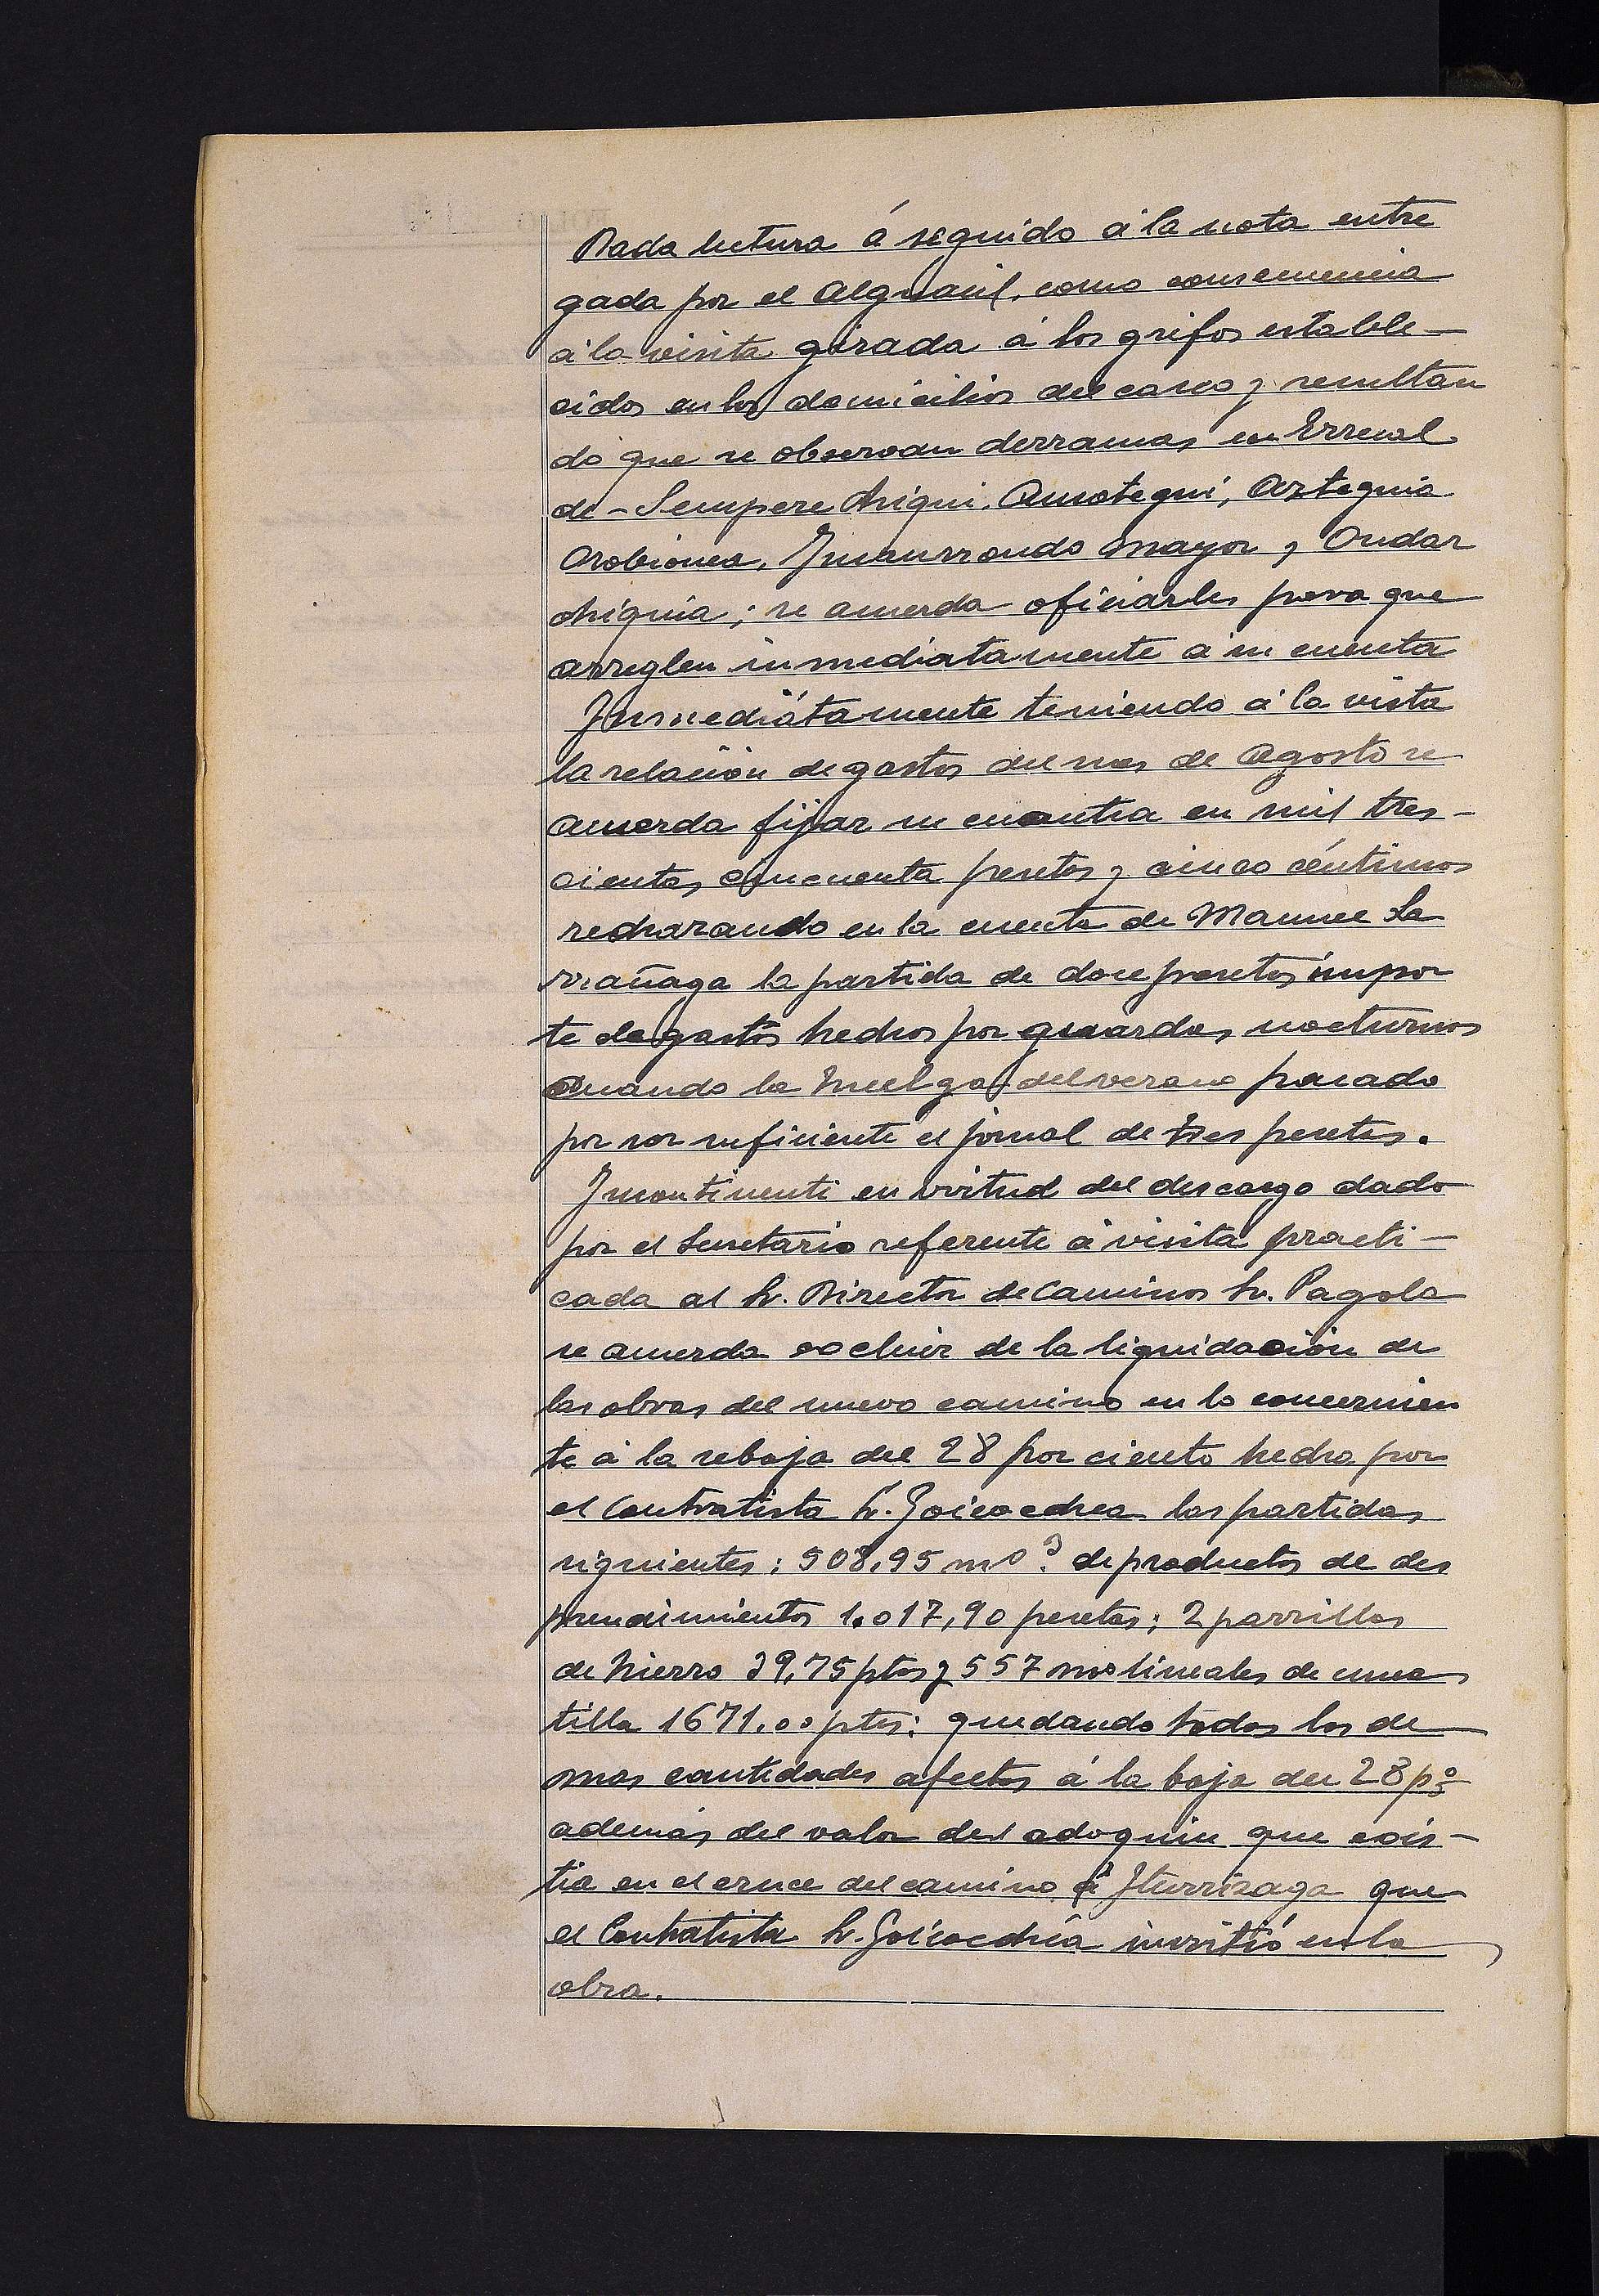 Dada lectura á seguido á la nota entre
gada por el Alguacil, como consecuencia
á la visita girada á los grifos estable-
cidos en los domicilios del casco y resultan
do que se observan derramas en Erreal
de - Sempere chiqui, Amategui, Azteguia
Arobiones, Inchurrondo mayor y Ondar
chiquia; se acuerda oficiarles para que
arreglen inmediatamente á su cuenta
Inmediátamente teniendo á la vista
la relación de gastos del mes de Agosto se
acuerda fijar su cuantia en mil tres-
cientas cincuenta pesetas y cinco céntimos
rechazando en la cuenta de Manuel La
rrañaga la partida de doce pesetas impor
te de gastos hechos por guardas nocturnos
cuando la huelga del verano pasado
por ser suficiente el jornal de tres pesetas.
Incontinenti en virtud del descargo dado
por el Secretario referente á visita practi-
cada al Sr. Director de Caminos Sr. Pagola
se acuerda excluir de la liquidación de
las obras del nuevo camino en lo concernien
te á la rebaja del 28 por ciento hecha por
el Contratista Sr. Goicoechea las partidas
siguientes: 508,95 ms 3. de productos de des
prendimientos 1.017,90 pesetas; 2 parrillas
de hierro 39,75 ptas y 557 ms lineales de cune
tilla 1671.00 ptas; quedando todas las de
mas cantidades afectas á la baja del 28 p%
además del valor del adoquin que exis-
tia en el cruce del camino á Iturrizaga que
el Contratista Sr. Goicoechea invirtió en la
obra.